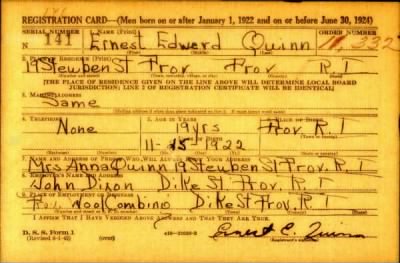 REGISTRATION CARD—(Men born on or after January 1, 1922 and on or before June 30, 1924)
SERIAL NUMBER 1. NAME (Print) ORDER NUMBER
N 141 Ernest Edward Quinn 11,332
2. PLACE OF RESIDENCE (Print)
19 Steuben St Prov. Prov. R.I
[THE PLACE OF RESIDENCE GIVEN ON THE LINE ABOVE WILL DETERMINE LOCAL BOARD
JURISDICTION; LINE 2 OF REGISTRATION CERTIFICATE WILL BE IDENTICAL]
3. MAILING ADDRESS
Same
4. TELEPHONE 5. AGE IN YEARS 6. PLACE OF BIRTH
None 19 yrs Prov. R.I
11-15-1922
7. NAME AND ADDRESS OF PERSON WHO WILL ALWAYS KNOW YOUR ADDRESS
Mrs Anna Quinn 19 Steuben St Prov. R.I
8. EMPLOYER'S NAME AND ADDRESS
John Dixon Dike St Prov. R.I
9. PLACE OF EMPLOYMENT OR BUSINESS
Wool Combing Dike St Prov. R.I
I AFFIRM THAT I HAVE VERIFIED ABOVE ANSWERS AND THAT THEY ARE TRUE.
D. S. S. Form 1
Ernest E. Quinn